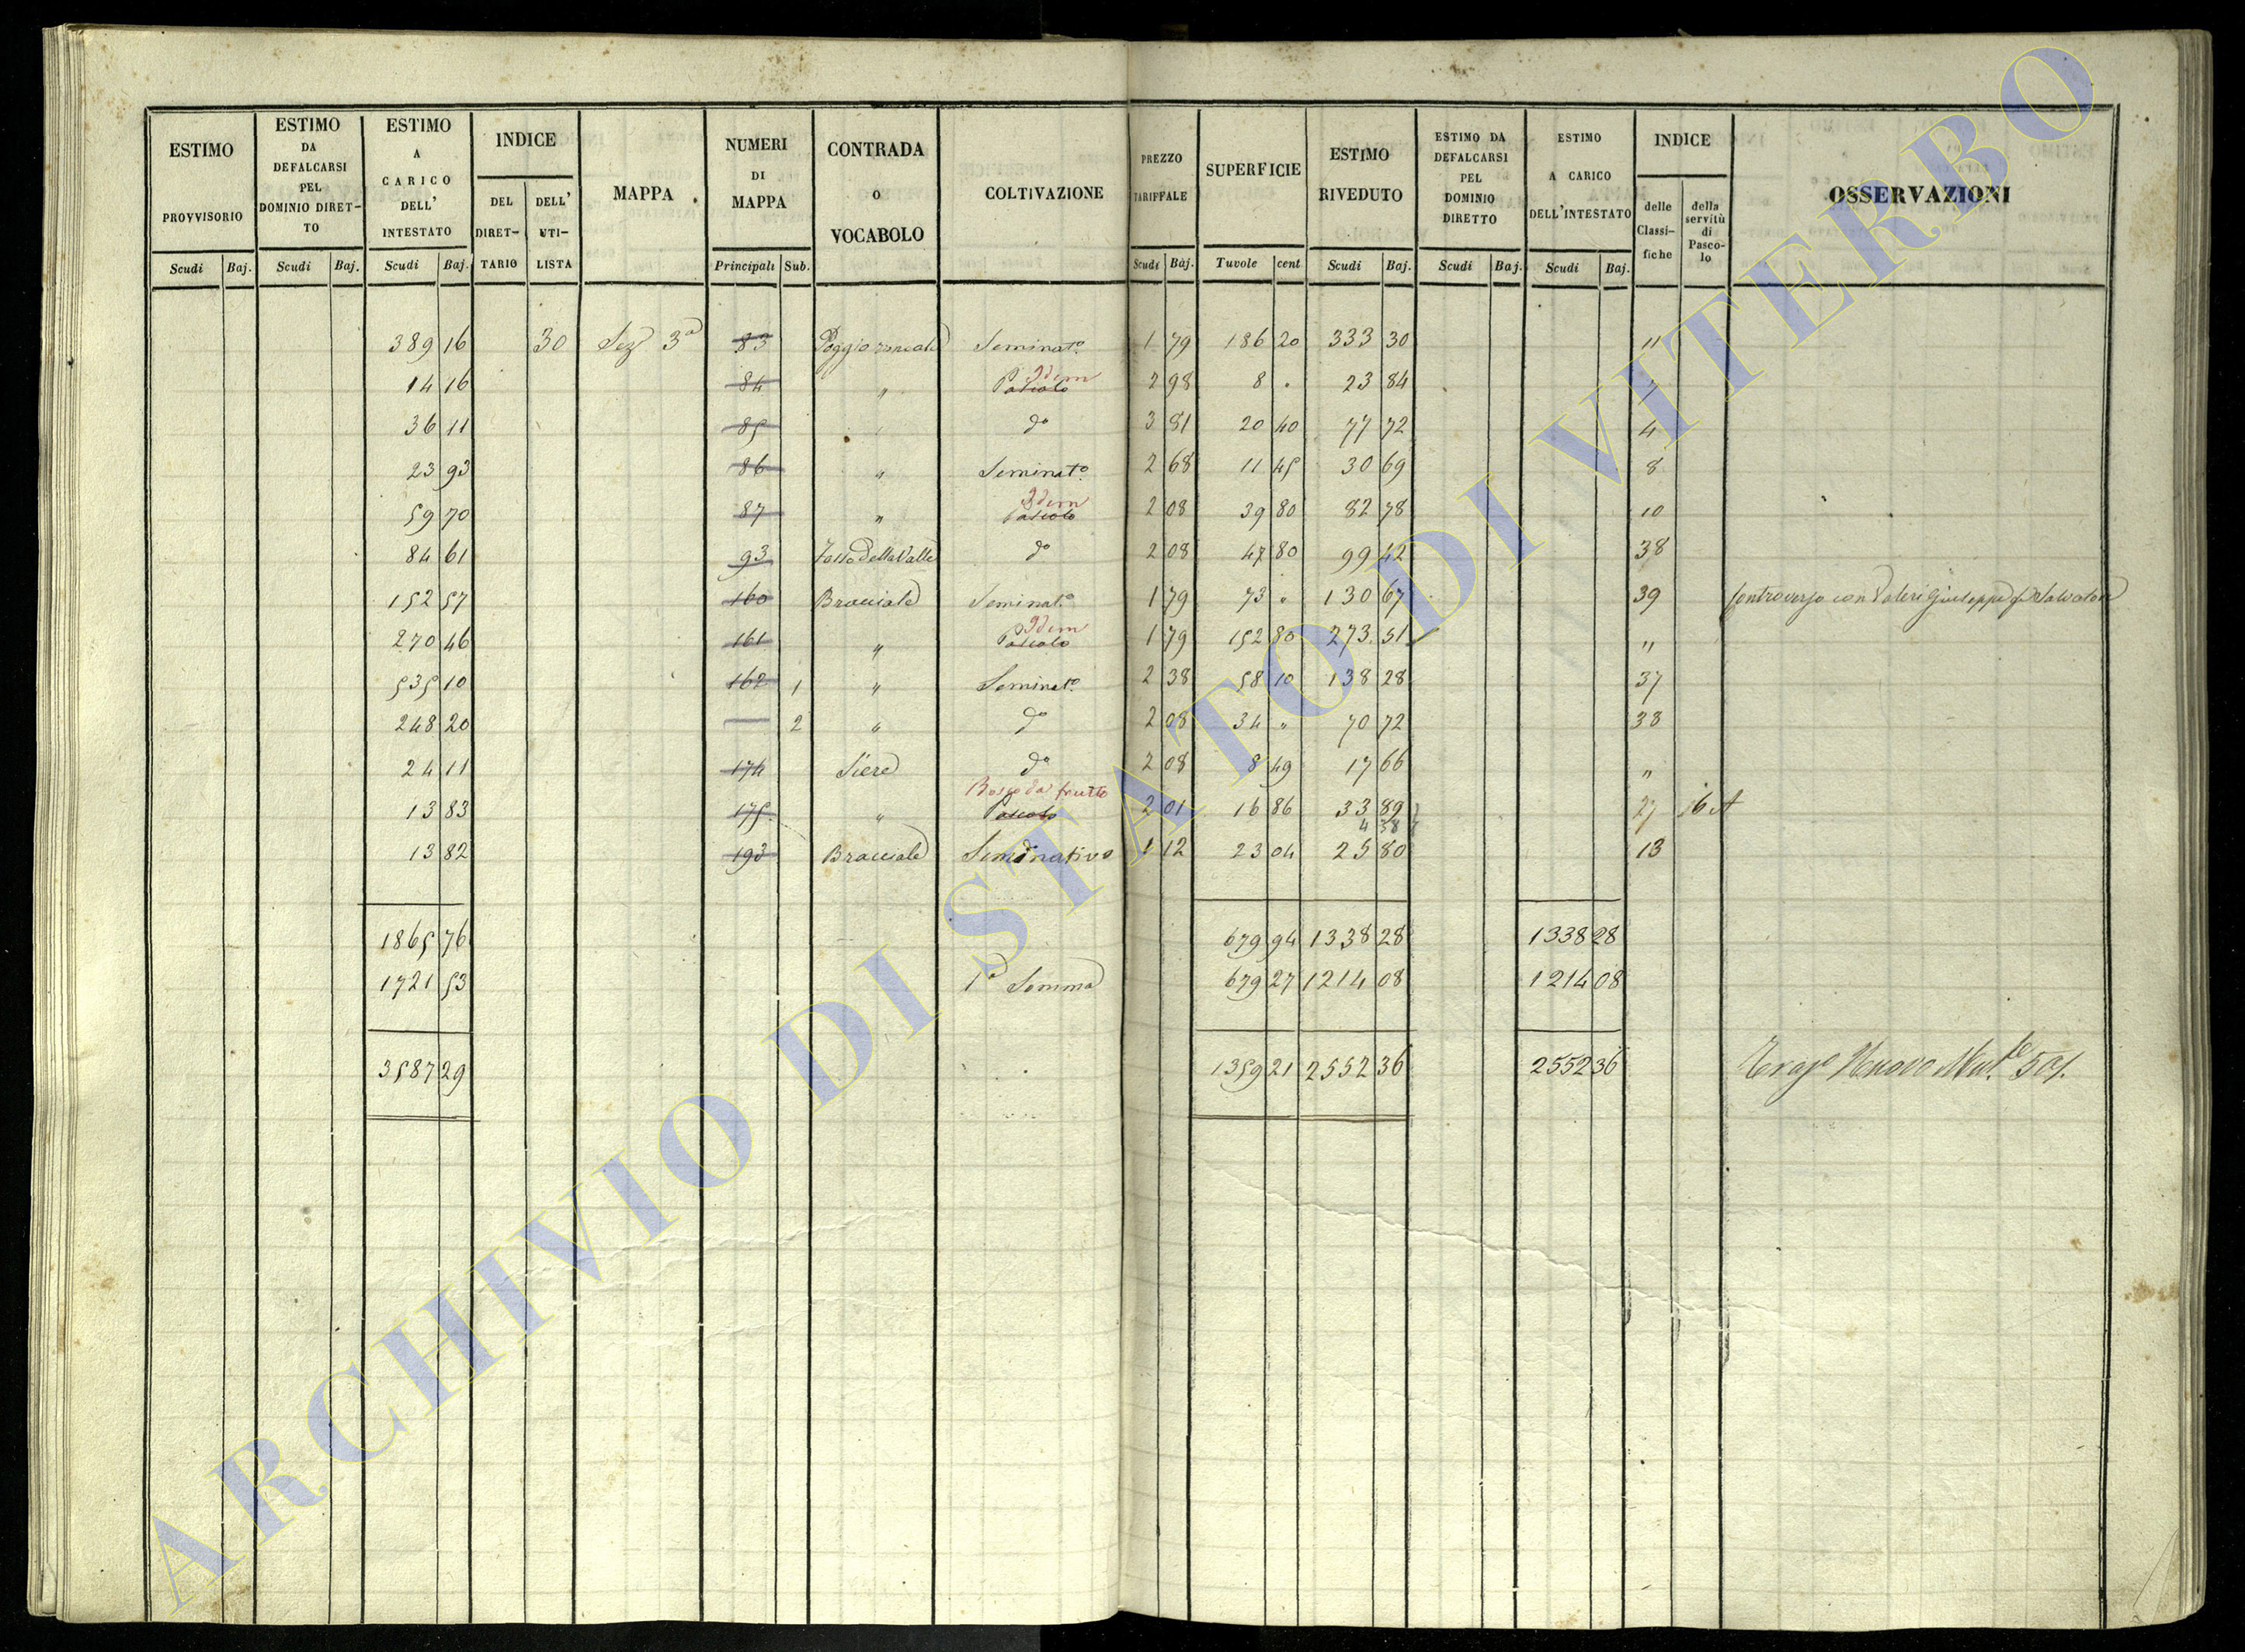 ESTIMO PROVVISORIO
ESTIMO DA DEFALCARSI PEL DOMINIO DIRET-TO
ESTIMO A CARICO DELL' INTESTATO
INDICE
DEL DIRET-TARIO
DELL' UTI-LISTA
MAPPA
NUMERI DI MAPPA
CONTRADA O VOCABOLO
COLTIVAZIONE
PREZZO TARIFFALE
SUPERFICIE
ESTIMO RIVEDUTO
ESTIMO DA DEFALCARSI PEL DOMINIO DIRETTO
ESTIMO A CARICO DELL'INTESTATO
INDICE
delle Classi-fiche
della servitù di Pasco-lo
OSSERVAZIONI
Scudi Baj. Scudi Baj. Scudi Baj. Principali Sub. Scudi Baj. Tavole cent Scudi Baj. Scudi Baj. Scudi Baj.
389 16 30 Sez 3a 83 Poggio Seminato. 1 79 186 20 333 30 11
14 16 84 " Pascolo Idem 2 98 8 . 23 84 "
36 11 85 do 3 81 20 40 77 72 4
23 93 86 " Seminato. 2 68 11 45 30 69 8
59 70 87 " Pascolo Idem 2 08 39 80 82 78 10
84 61 93 Fosso della Valle do 2 08 47 80 99 42 38
152 57 160 Bracciale Seminato. 1 79 73 " 130 67 39 controverso con Valeri Giuseppe Salvatore
270 46 161 " Pascolo Idem 1 79 152 80 273 51 "
535 10 162 1 " Seminato. 2 38 58 10 138 28 37
248 20 2 " do 2 08 34 " 70 72 38
24 11 174 Siere do 2 08 8 49 17 66 "
Bosco da frutto
13 83 175 " Pascolo 2 01 16 86 33 89 27 16 A
4 38
13 82 193 Bracciale Seminativo 1 12 23 04 25 80 13
1865 76 679 94 1338 28 1338 28
1721 53 1a Somma 679 27 1214 08 1214 08
3587 29 1359 21 2552 36 2552 36
ARCHIVIO DI STATO DI VITERBO